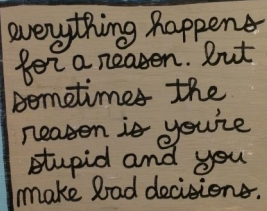 everything happens
for a reason. but
sometimes the
reason is you're
stupid and you
make bad decisions.